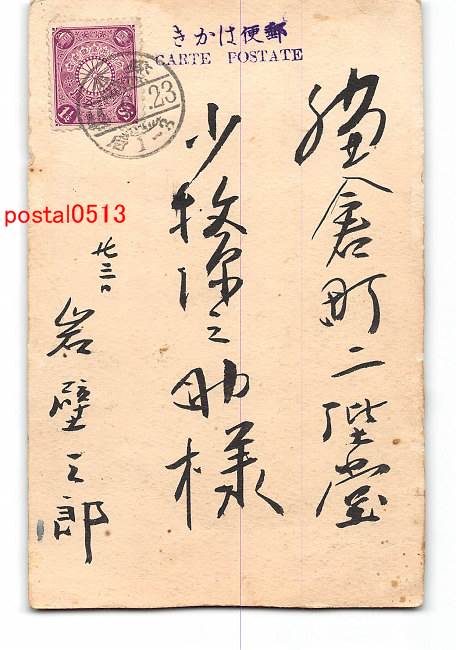 きかはは便郵
CARTE POSTATE
鎌倉町二階堂
少牧源之助様
廿三日
岩壁三郎
.23
1½
postal0513